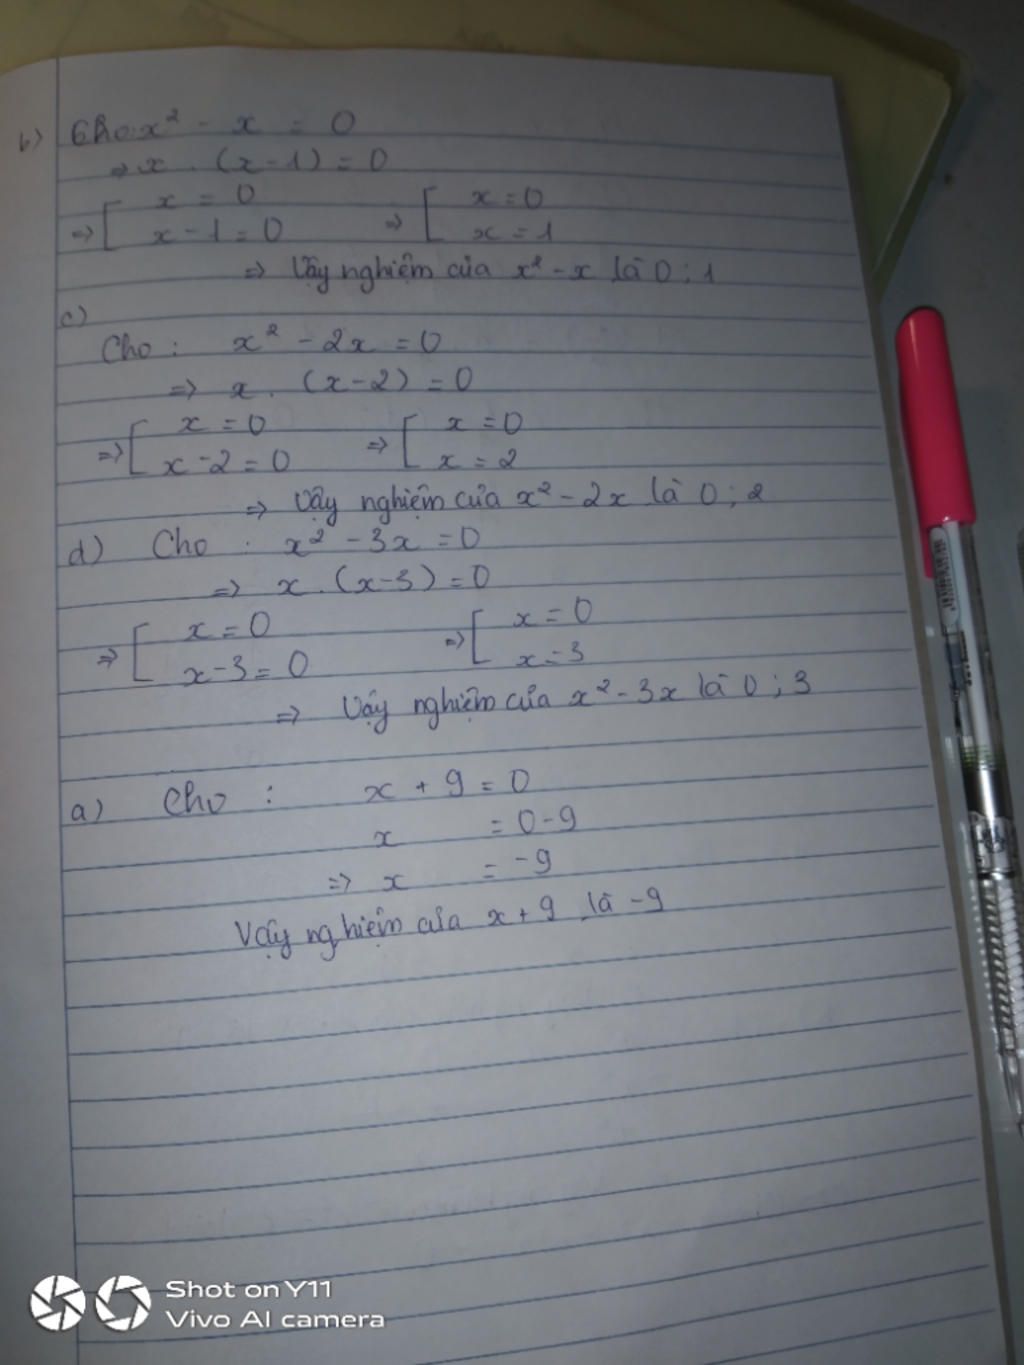 b) Cho: x² - x = 0
=> x . (x-1) = 0
=> [ x = 0 => [ x = 0
x - 1 = 0 x = 1
=> Vậy nghiệm của x² - x là 0 ; 1
c)
Cho : x² - 2x = 0
=> x . (x-2) = 0
=> [ x = 0 => [ x = 0
x - 2 = 0 x = 2
=> Vậy nghiệm của x² - 2x là 0 ; 2
d) Cho : x² - 3x = 0
=> x . (x-3) = 0
=> [ x = 0 => [ x = 0
x - 3 = 0 x = 3
=> Vậy nghiệm của x² - 3x là 0 ; 3
a) Cho : x + 9 = 0
x = 0 - 9
=> x = -9
Vậy nghiệm của x + 9 là -9
Shot on Y11
Vivo AI camera